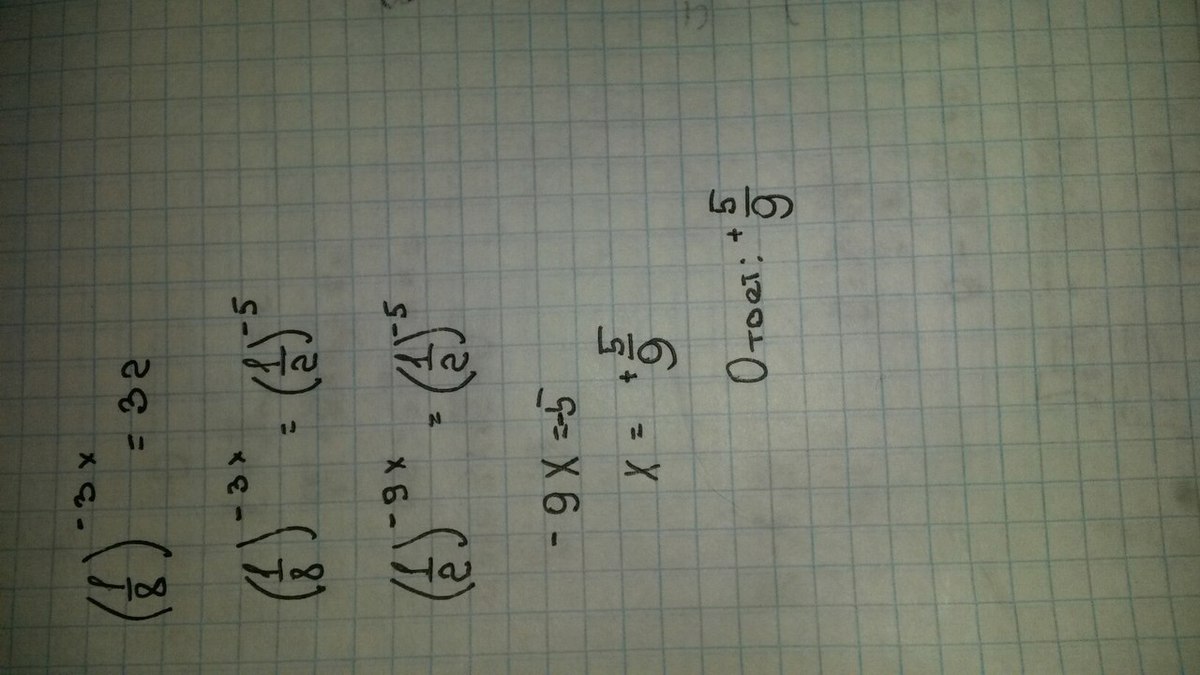 (1/8)^-3x = 32
(1/8)^-3x = (1/2)^-5
(1/2)^-9x = (1/2)^-5
-9x = -5
x = +5/9
Ответ: +5/9